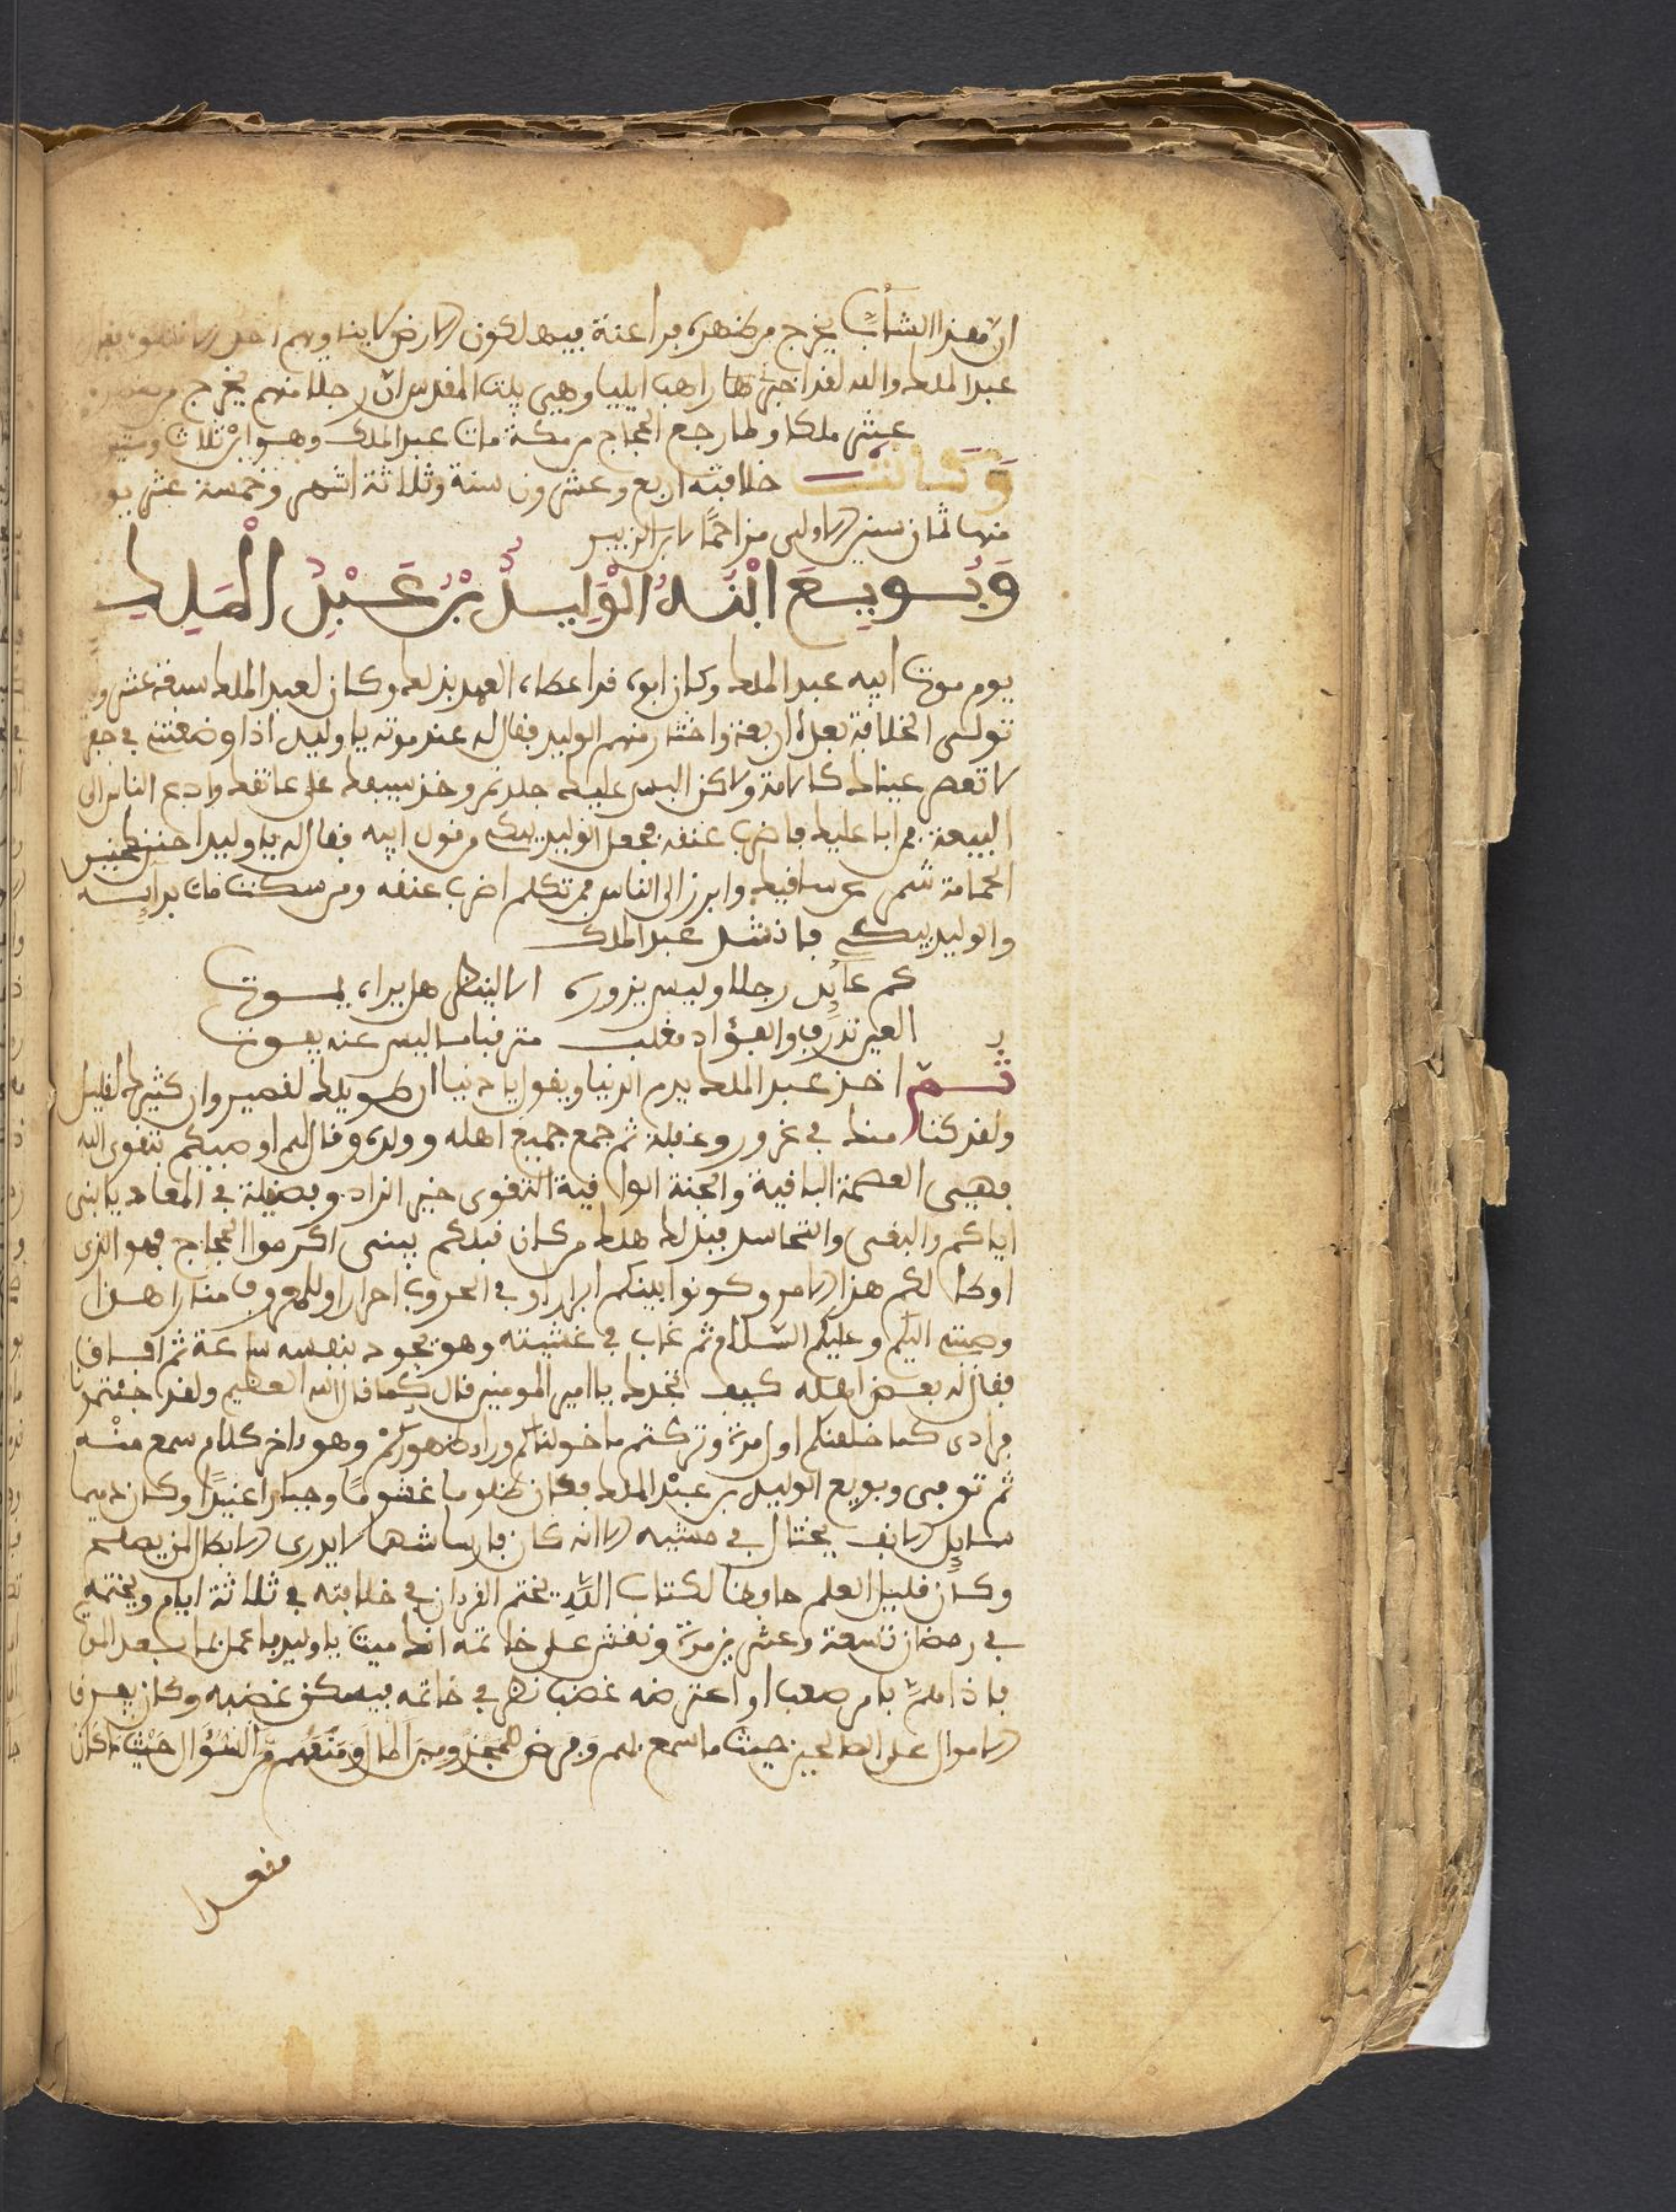 ان هذا الشاب يخرج من ظهره فراعنة فيملكون الارض
عبد الملك والله لقد اخبرني هذا راهب ايليا وهي بيت المقدس ان رجلا منهم يخرج من
عشر ملكا ولما رجع الحجاج من مكة مات عبد الملك وهو ابن ثلاث وستين
وكانت خلافته اربع وعشرون سنة وثلاثة اشهر وخمسة عشر يو
منها ثمان سنين الاولى مزاحمًا لابن الزبير
وَبُويِعَ ابْنُهُ الْوَلِيدُ بْنُ عَبْدِ الْمَلِكِ
يوم موت ابيه عبد الملك وكان ابوه قد اعطاه العهد بذلك وكان لعبد الملك سبعة عشر ولد
تولى الخلافة بعده اربعة واختار منهم الوليد فقال له عند موته يا وليد اذا وضعتني في حفر
لا تعصر عيناك كالامة ولاكن البس عليك جلد نمر وخذ سيفك على عاتقك وادع الناس الى
البيعة فمن ابا عليك فاضرب عنقه فجعل الوليد يبكي من قول ابيه فقال له يا وليد احنن كحنين
الحمامة شمر عن ساقيك وابرز الى الناس فمن تكلم اضرب عنقه ومن سكت مات بدايه
والوليد يبكي فانشد عبد الملك
كم عايد رجلا وليس يزوره الا لينظر هل يراه يموت
العين تذرف والفؤاد مغلب مترقبا ما ليس عنه يفوت
ثم اخذ عبد الملك يذم الدنيا ويقول يا دنيا ان طويلك لقصير وان كثيرك لقليل
ولقد كنا منك في غرور وغفلة ثم جمع جميع اهله وولده وقال لهم اوصيكم بتقوى الله
فهي العصمة الباقية والجنة الواقية التقوى خير الزاد وفضيلة في المعاد يا بني
اياكم والبغي والتحاسد فبذلك هلك من كان قبلكم يبني اكرموا الحجاج فهو الذي
اوطا لكم هذا الامر وكونوا بينكم ابرارا وفي الحروب احرارا وللمعروف منارا هذا
وصيتي اليكم وعليكم السلام ثم غاب في غشيته وهو يجود بنفسه ساعة ثم افاق
فقال له بعض اهله كيف تجدك يا امير المومنين قال كما قال الله العظيم ولقد جئتمونا
فرادى كما خلقنكم اول مرة وتركتم ما خولناكم وراء ظهوركم وهو ءاخر كلام سمع منه
ثم توفى وبويع الوليد بن عبد الملك فكان ظلوما غشومًا وجبارا عنيدًا وكان دميما
سايل الانف يختال في مشيه الا انه كان فارسا شهما لا يدرى الابطال لمن يصلح
وكان قليل العلم حافظا لكتاب الله يختم القرءان في خلافته في ثلاثة ايام ويختمه
في رمضان تسعة وعشرين مرة ونقش على خاتمه انك ميت يا وليد فاعمل لما بعد الموت
فاذا امر بامر صعب او اعترضه غضب نظر في خاتمه فيسكن غضبه وكان يصرف
الاموال على الصالحين حيث ما سمع بهم وفرض للمجذومين المال ومنعهم من السؤال حيث ما كان
مقعدا